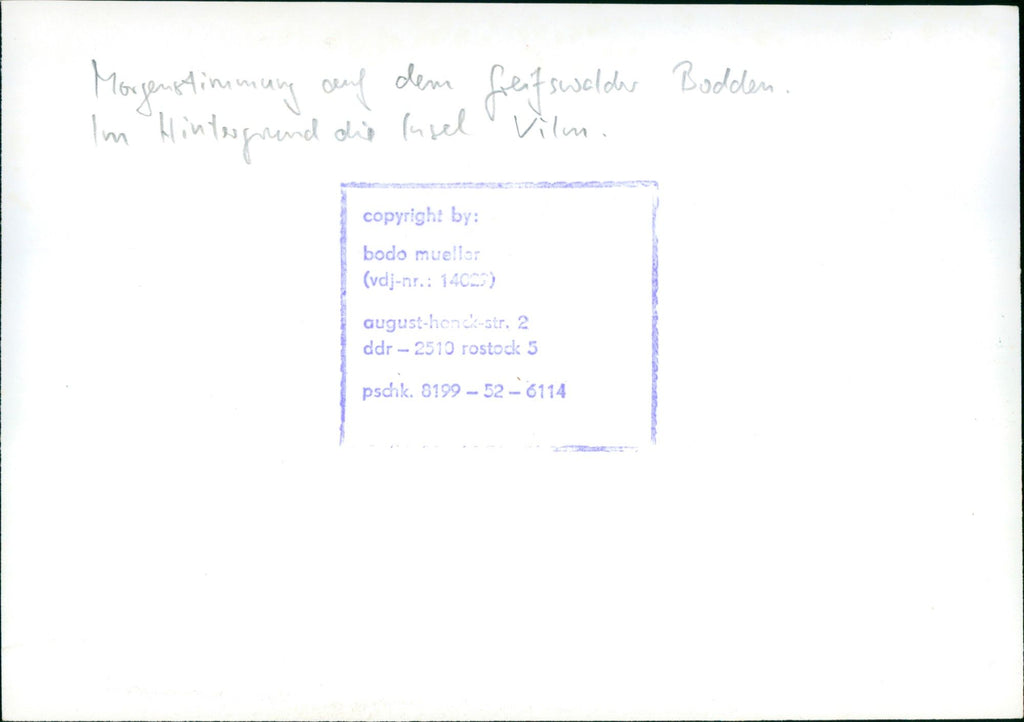 Morgenstimmung auf dem Greifswalder Bodden.
Im Hintergrund die Insel Vilm.
copyright by:
bodo mueller
(vdj-nr.: 14029)
august-henck-str. 2
ddr – 2510 rostock 5
pschk. 8199 – 52 – 6114